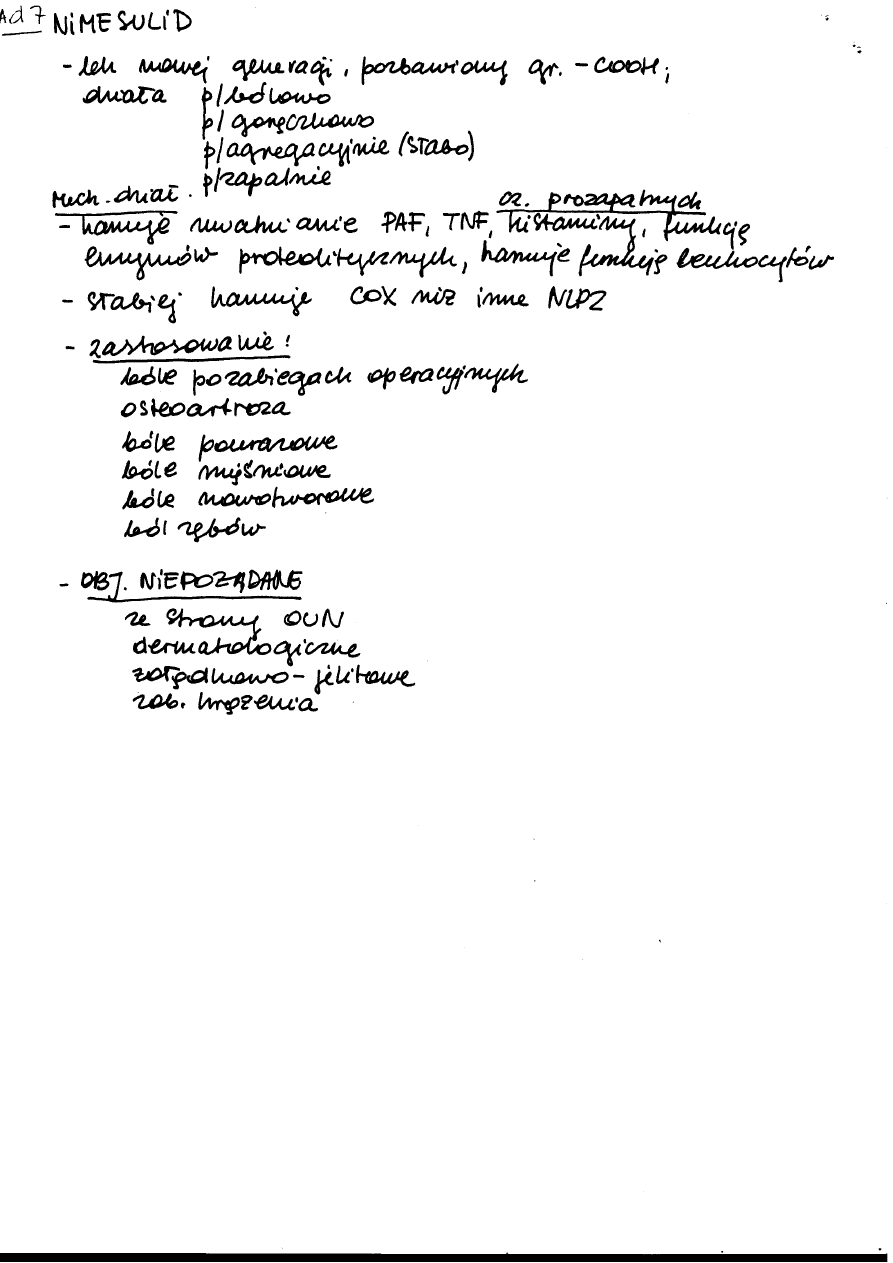 Ad 7 NIMESULID
- lek nowej generacji, pozbawiony gr. -COOH;
działa p/bólowo
p/gorączkowo
p/agregacyjnie (słabo)
p/zapalnie
Mech. dział. cz. prozapalnych
- hamuje uwalnianie PAF, TNF, histaminy, funkcję
enzymów proteolitycznych, hamuje funkcję leukocytów
- słabiej hamuje COX niż inne NLPZ
- zastosowanie:
bóle po zabiegach operacyjnych
osteoartroza
bóle pourazowe
bóle mięśniowe
bóle nowotworowe
ból zębów
- OBJ. NIEPOŻĄDANE
ze strony OUN
dermatologiczne
żołądkowo-jelitowe
zab. krążenia